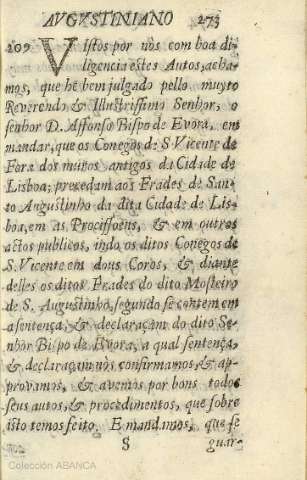 AVGVSTINIANO 273
209 VIstos por nòs com boa di-
ligencia estes Autos, acha-
mos, que hè bem julgado pello muyto
Reverendo, & Illustrissimo Senhor, o
senhor D. Affonso Bispo de Evora, em
mandar, que os Conegos de S Vicente de
Fòra dos muros antigos da Cidade de
Lisboa, precedam aos Frades de San-
to Augustinho da dita Cidade de Lis-
boa, em as Procissoens, & em outros
actos publicos, indo os ditos Conegos de
S. Vicente em dous Coros, & diante
delles os ditos Frades do dito Mosteiro
de S. Augustinho, segundo se contem em
a sentença, & declaraçam do dito Se-
nhor Bispo de Evora, a qual sentença,
& declaraçam nòs confirmamos, & ap-
provamos, & avemos por bons todos
seus autos, & procedimentos, que sobre
isto tem os feito. E mandamos, que se
S guar-
Colección ABANCA